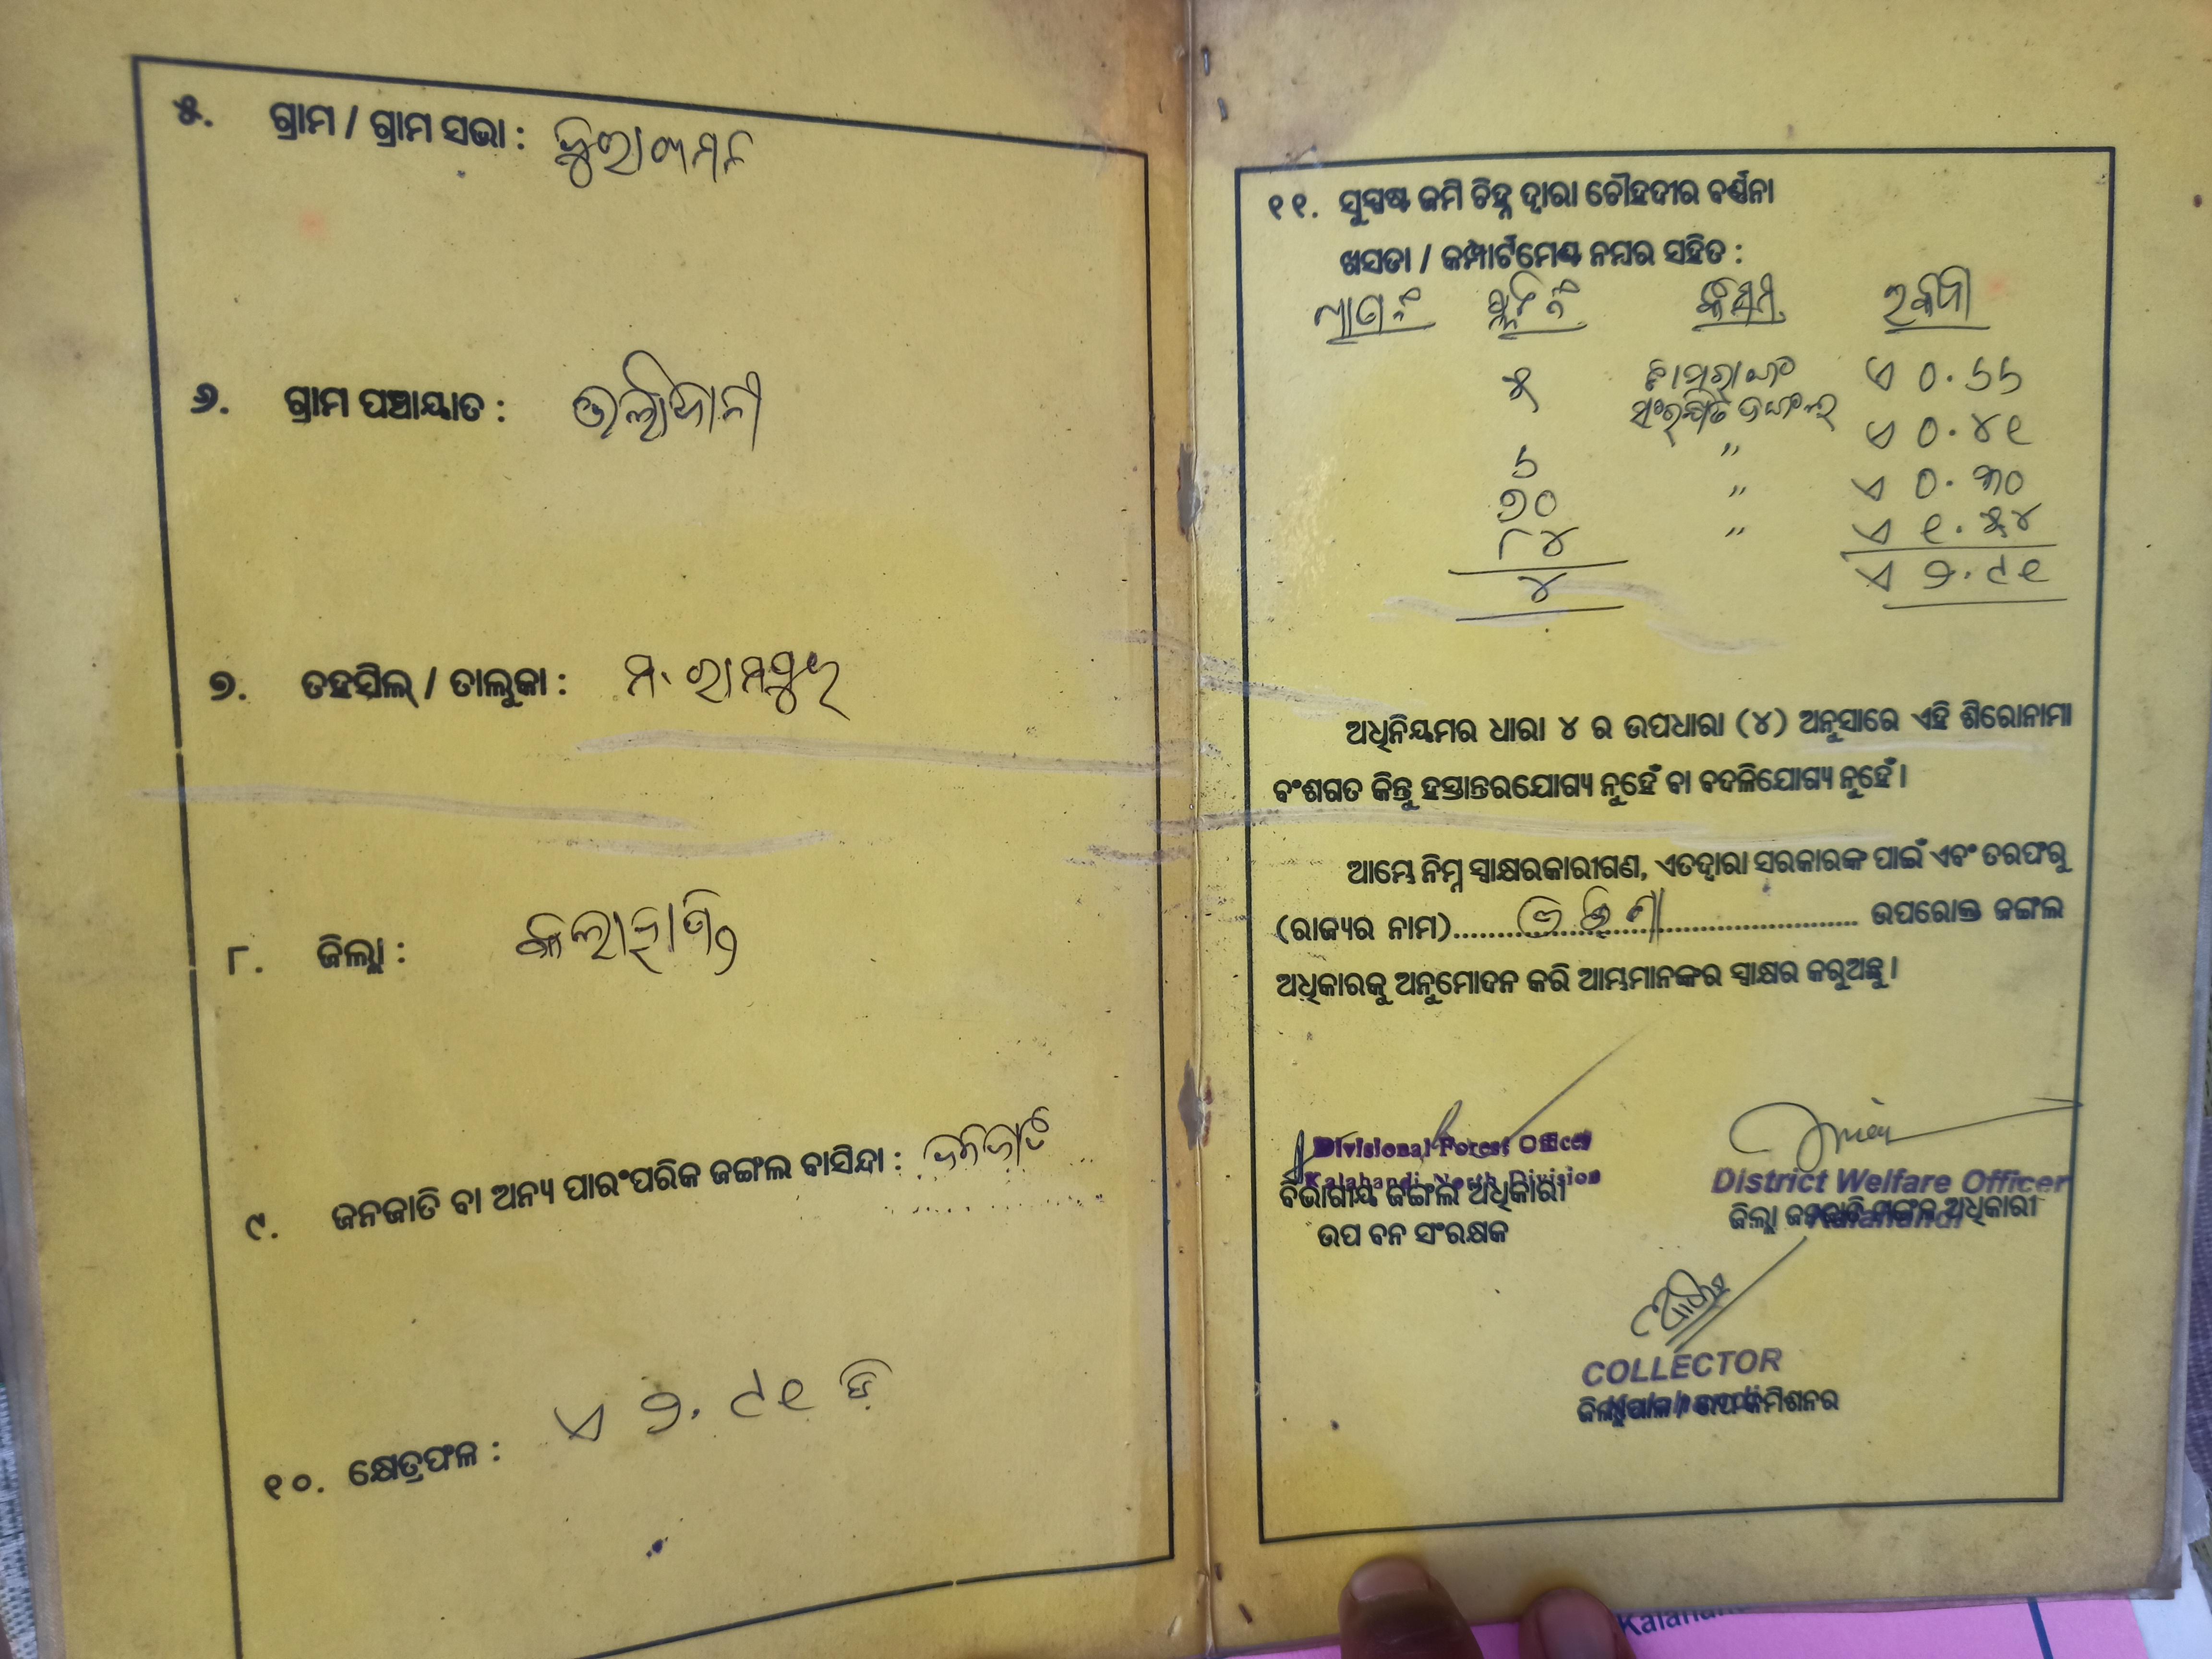 ୫. ଗ୍ରାମ / ଗ୍ରାମ ସଭା :
୬. ଗ୍ରାମ ପଞ୍ଚାୟାତ :
୭. ତହସିଲ୍ / ତାଲୁକା : ମ. ରାମପୁର
୮. ଜିଲ୍ଲା : କଳାହାଣ୍ଡି
୯. ଜନଜାତି ବା ଅନ୍ୟ ପାରଂପରିକ ଜଙ୍ଗଲ ବାସିନ୍ଦା : ଜନଜାତି
୧୦. କ୍ଷେତ୍ରଫଳ : ଏ ୨.୯୧ ଡି
୧୧. ସୁସ୍ପଷ୍ଟ ଜମି ଚିହ୍ନ ଦ୍ଵାରା ଚୌହଦୀର ବର୍ଣ୍ଣନା
ଖସଡା / କମ୍ପାର୍ଟମେଣ୍ଟ ନମ୍ବର ସହିତ :
ପ୍ଲଟ ନଂ କିସମ ରକବା
୫ ଏ ୦.୬୬
ସଂରକ୍ଷିତ ଜଙ୍ଗଲ
୬ " ଏ ୦.୪୧
୭୦ " ଏ ୦.୩୦
୮୪ " ଏ ୧.୫୪
୪ ଏ ୨.୯୧
ଅଧିନିୟମର ଧାରା ୪ ର ଉପଧାରା (୪) ଅନୁସାରେ ଏହି ଶିରୋନାମା
ବଂଶଗତ କିନ୍ତୁ ହସ୍ତାନ୍ତରଯୋଗ୍ୟ ନୁହେଁ ବା ବଦଳିଯୋଗ୍ୟ ନୁହେଁ ।
ଆମ୍ଭେ ନିମ୍ନ ସ୍ୱାକ୍ଷରକାରୀଗଣ, ଏତଦ୍ୱାରା ସରକାରଙ୍କ ପାଇଁ ଏବଂ ତରଫରୁ
(ରାଜ୍ୟର ନାମ)..........ଓଡ଼ିଶା.......... ଉପରୋକ୍ତ ଜଙ୍ଗଲ
ଅଧିକାରକୁ ଅନୁମୋଦନ କରି ଆମ୍ଭମାନଙ୍କର ସ୍ୱାକ୍ଷର କରୁଅଛୁ ।
Divisional Forest Officer
Kalahandi North Division
ବିଭାଗୀୟ ଜଙ୍ଗଲ ଅଧିକାରୀ
ଉପ ବନ ସଂରକ୍ଷକ
District Welfare Officer
Kalahandi
ଜିଲ୍ଲା ଜନଜାତି ମଙ୍ଗଳ ଅଧିକାରୀ
COLLECTOR
ଜିଲ୍ଲାପାଳ / ଉପ କମିଶନର